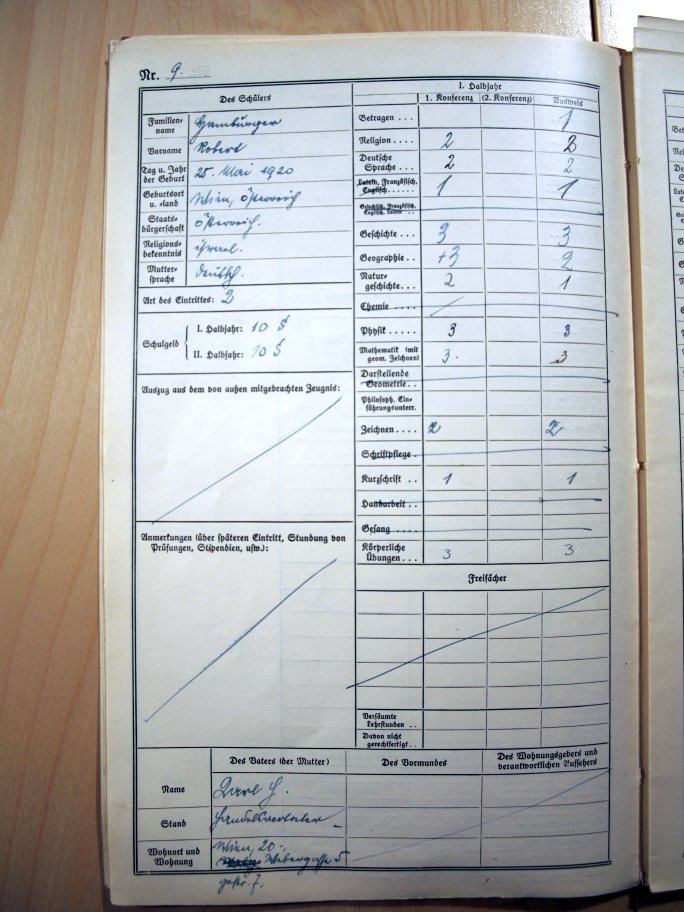 Nr. 9.
Des Schülers
Familien-
name Hamburger
Vorname Robert
Tag u. Jahr
der Geburt 25. Mai 1920
Geburtsort
u. -land Wien, Österreich
Staats-
bürgerschaft Österreich.
Religions-
bekenntnis israel.
Mutter-
sprache deutsch.
Art des Eintrittes: 2
Schulgeld
I. Halbjahr: 10 S
II. Halbjahr: 10 S
Auszug aus dem von außen mitgebrachten Zeugnis:
Anmerkungen (über späteren Eintritt, Stundung von
Prüfungen, Stipendien, usw.):
I. Halbjahr
1. Konferenz (2. Konferenz) Ausweis
Betragen . . . 1
Religion . . . 2 2
Deutsche
Sprache . . . 2 2
Latein, Französisch,
Englisch . . . . . . 1 1
Griechisch, Französisch,
Englisch, Latein . .
Geschichte . . . 3 3
Geographie . . +3 2
Natur-
geschichte . . . . 2 1
Chemie . . . .
Physik . . . . . 3 3
Mathematik (mit
geom. Zeichnen) 3. 3
Darstellende
Geometrie . .
Philosoph. Ein-
führungsunterr.
Zeichnen . . . . 2 2
Schriftpflege .
Kurzschrift . . 1 1
Handarbeit . .
Gesang . . . .
Körperliche
Übungen . . . 3 3
Freifächer
Versäumte
Lehrstunden . .
Davon nicht
gerechtfertigt . .
Des Vaters (der Mutter) Des Vormundes Des Wohnungsgebers und
verantwortlichen Aufsehers
Name Karl H.
Stand Handelsvertreter
Wohnort und
Wohnung Wien, 20.,
Webergasse 5